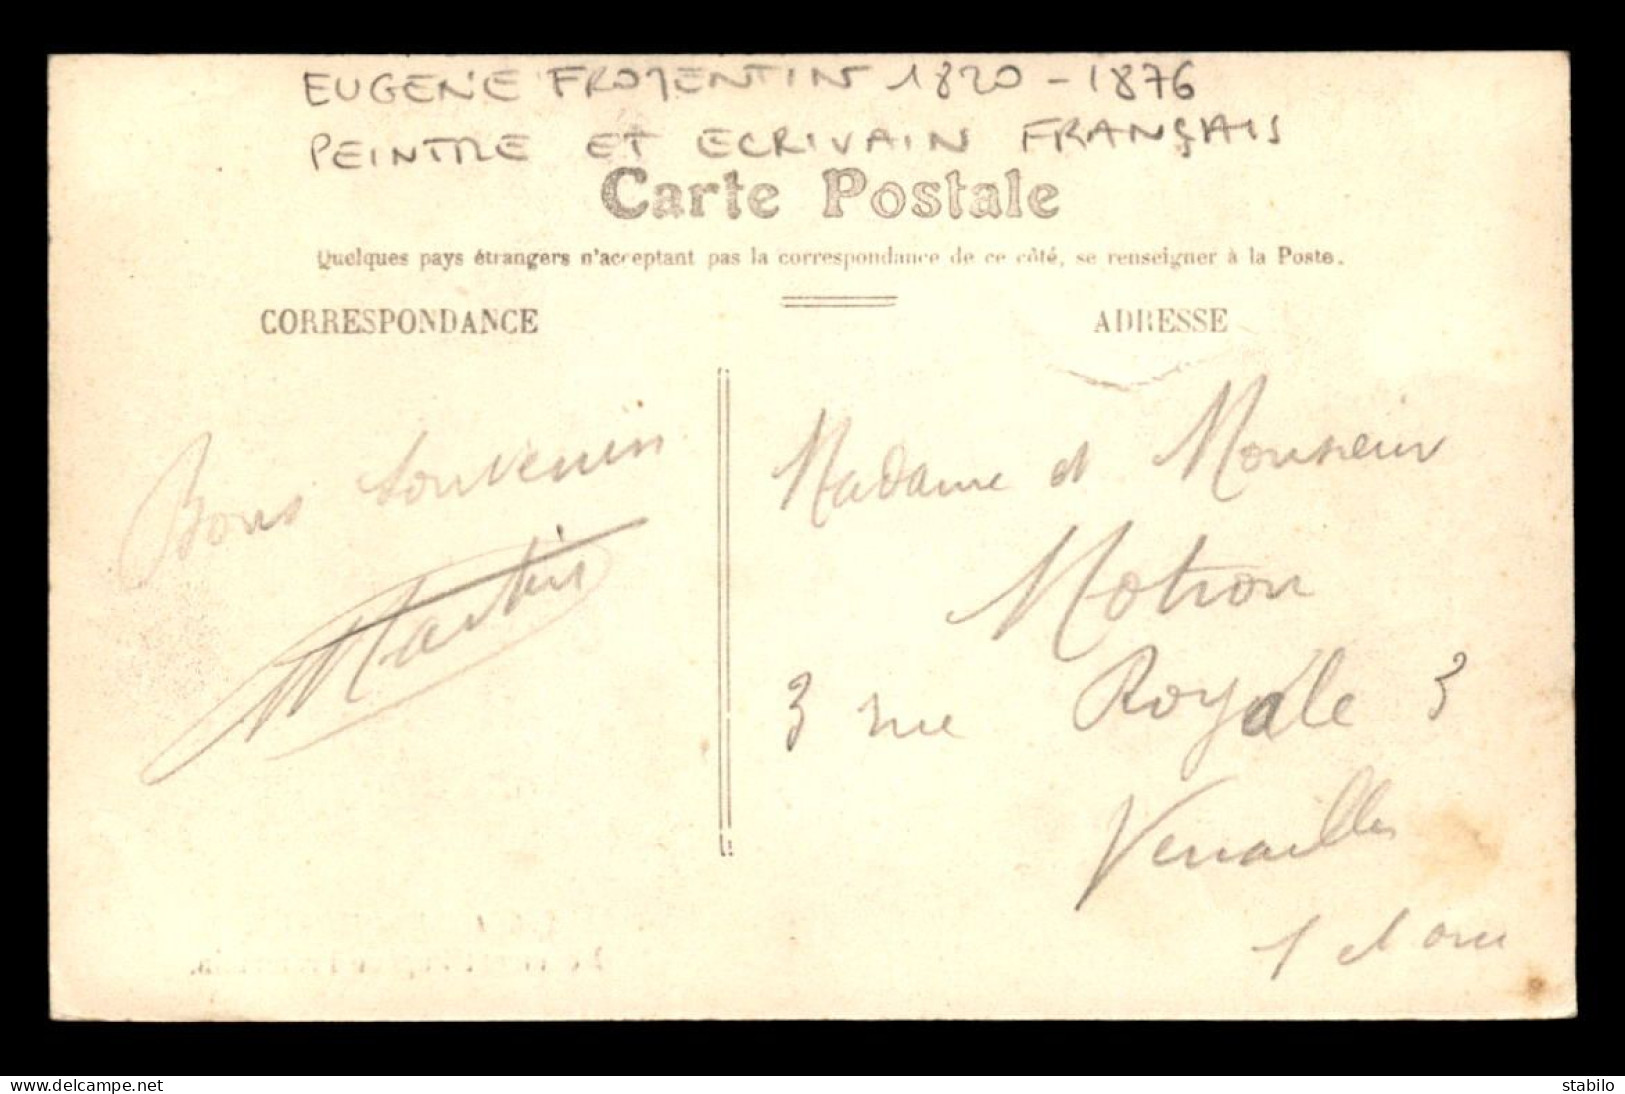 EUGENE FROMENTIN 1820 - 1876
PEINTRE ET ECRIVAIN FRANÇAIS
Carte Postale
Quelques pays étrangers n'acceptent pas la correspondance de ce côté, se renseigner à la Poste.
CORRESPONDANCE
ADRESSE
Bons souvenirs
Martin
Madame et Monsieur
Motron
3 rue Royale 3
Versailles
delcampe.net
stabilo